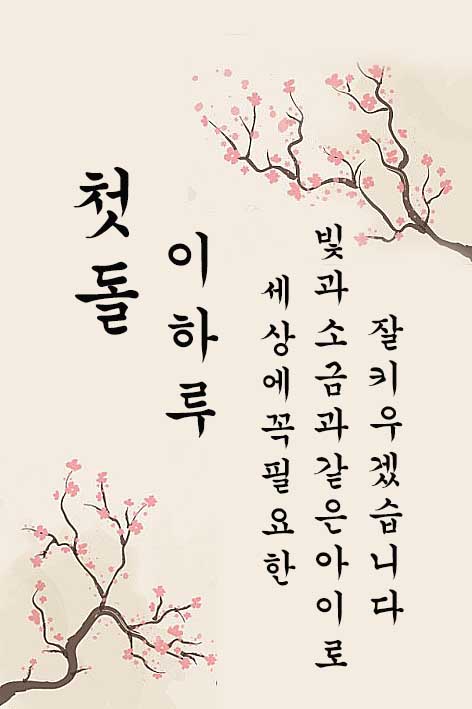 첫돌
이하루
세상에꼭필요한
빛과소금과같은아이로
잘키우겠습니다